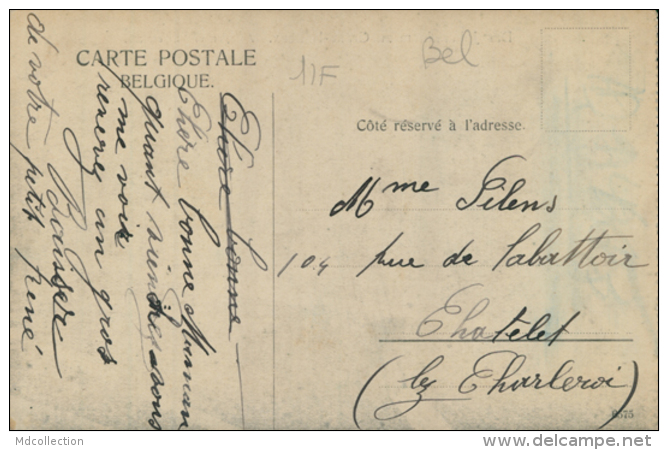 CARTE POSTALE
BELGIQUE.
11F
Bel
Côté réservé à l'adresse.
Chère bonne
Chère bonne Maman
quant
me voir
recevez un gros
Baiser
de votre petit
René
Mme Gilens
104 rue de l'abattoir
Chatelet
(lez Charleroi)
6575
Mdcollection
delcampe.net